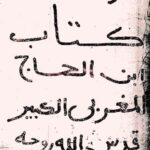 كتاب
ابن الحاج
المغربي الكبير
قدس الله روحه